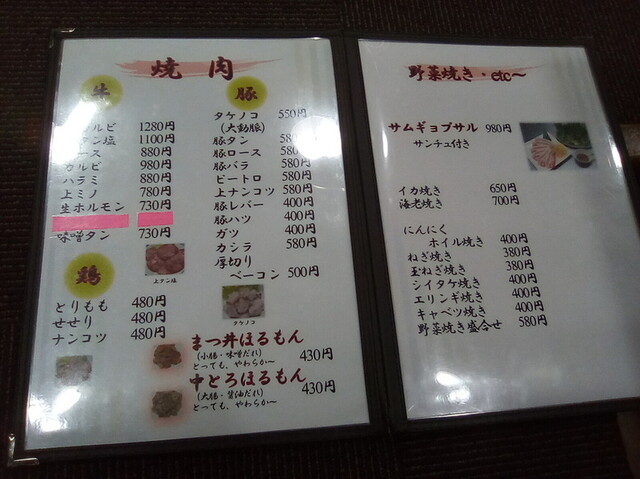 焼肉
牛
ルビ 1280円
タン塩 1100円
ース 880円
カルビ 980円
ハラミ 880円
上ミノ 780円
生ホルモン 730円
味噌タン 730円
上タン塩
鶏
とりもも 480円
せせり 480円
ナンコツ 480円
豚
タケノコ 550円
(大動脈)
豚タン 580円
豚ロース 580円
豚バラ 580円
ピートロ 580円
上ナンコツ 580円
豚レバー 400円
豚ハツ 400円
ガツ 400円
カシラ 580円
厚切り
ベーコン 500円
タケノコ
まつ井ほるもん 430円
(小腸・味噌だれ)
とっても、やわらか〜
中とろほるもん 430円
(大腸・醤油だれ)
とっても、やわらか〜
野菜焼き・etc〜
サムギョプサル 980円
サンチュ付き
イカ焼き 650円
海老焼き 700円
にんにく
ホイル焼き 400円
ねぎ焼き 380円
玉ねぎ焼き 380円
シイタケ焼き 400円
エリンギ焼き 400円
キャベツ焼き 400円
野菜焼き盛合せ 580円